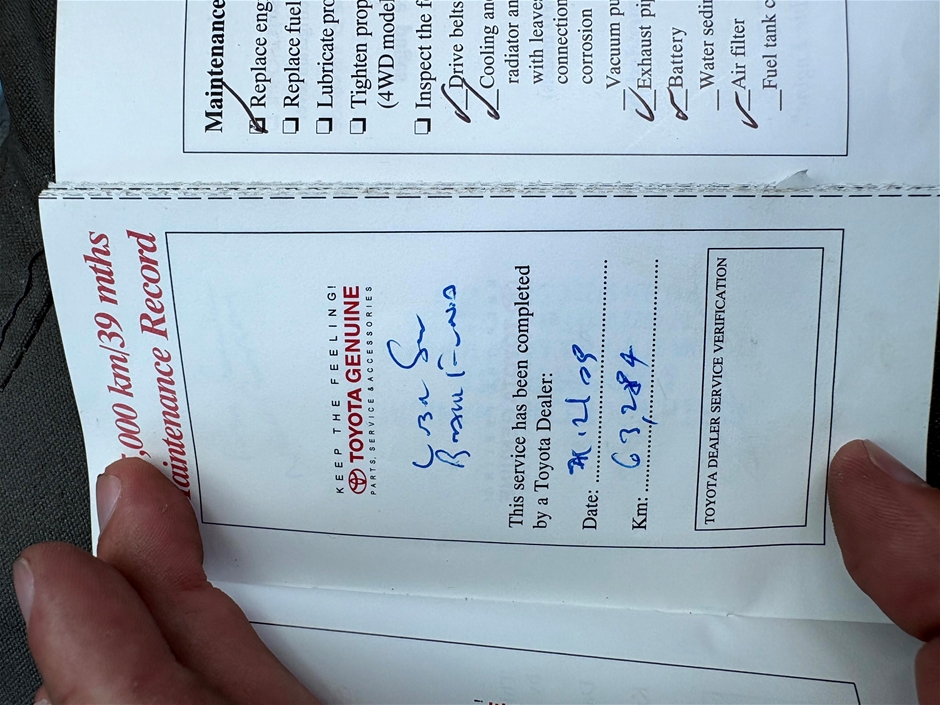 Maintenance
☑ Replace eng
❑ Replace fuel
❑ Lubricate pro
❑ Tighten prop
(4WD model
❑ Inspect the f
Drive belts
Cooling and
radiator an
with leave
connection
corrosion
Vacuum pu
Exhaust pi
Battery
Water sedi
Air filter
Fuel tank c
,000 km/39 mths
Maintenance Record
KEEP THE FEELING!
TOYOTA GENUINE
PARTS, SERVICE & ACCESSORIES
This service has been completed
by a Toyota Dealer:
Date:
Km: 63,284
TOYOTA DEALER SERVICE VERIFICATION